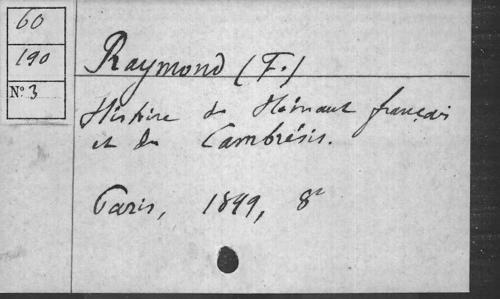 60
190
N° 3
Raymond (F.)
Histoire du Hainaut français
et du Cambrésis.
Paris, 1899, 8°